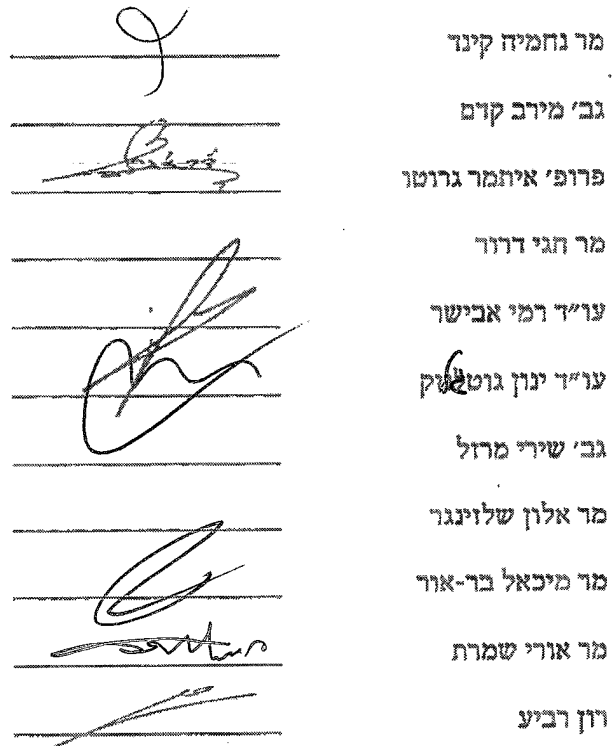 מר נחמיה קינד
גב׳ מירב קדם
פרופ׳ איתמר גרוטו
מר חגי דרור
עו״ד רמי אבישר
עו״ד ינון
גב׳ שירי מרזל
מר אלון שלזינגר
מר מיכאל בר-אור
מר אורי שמרת
רון רביע